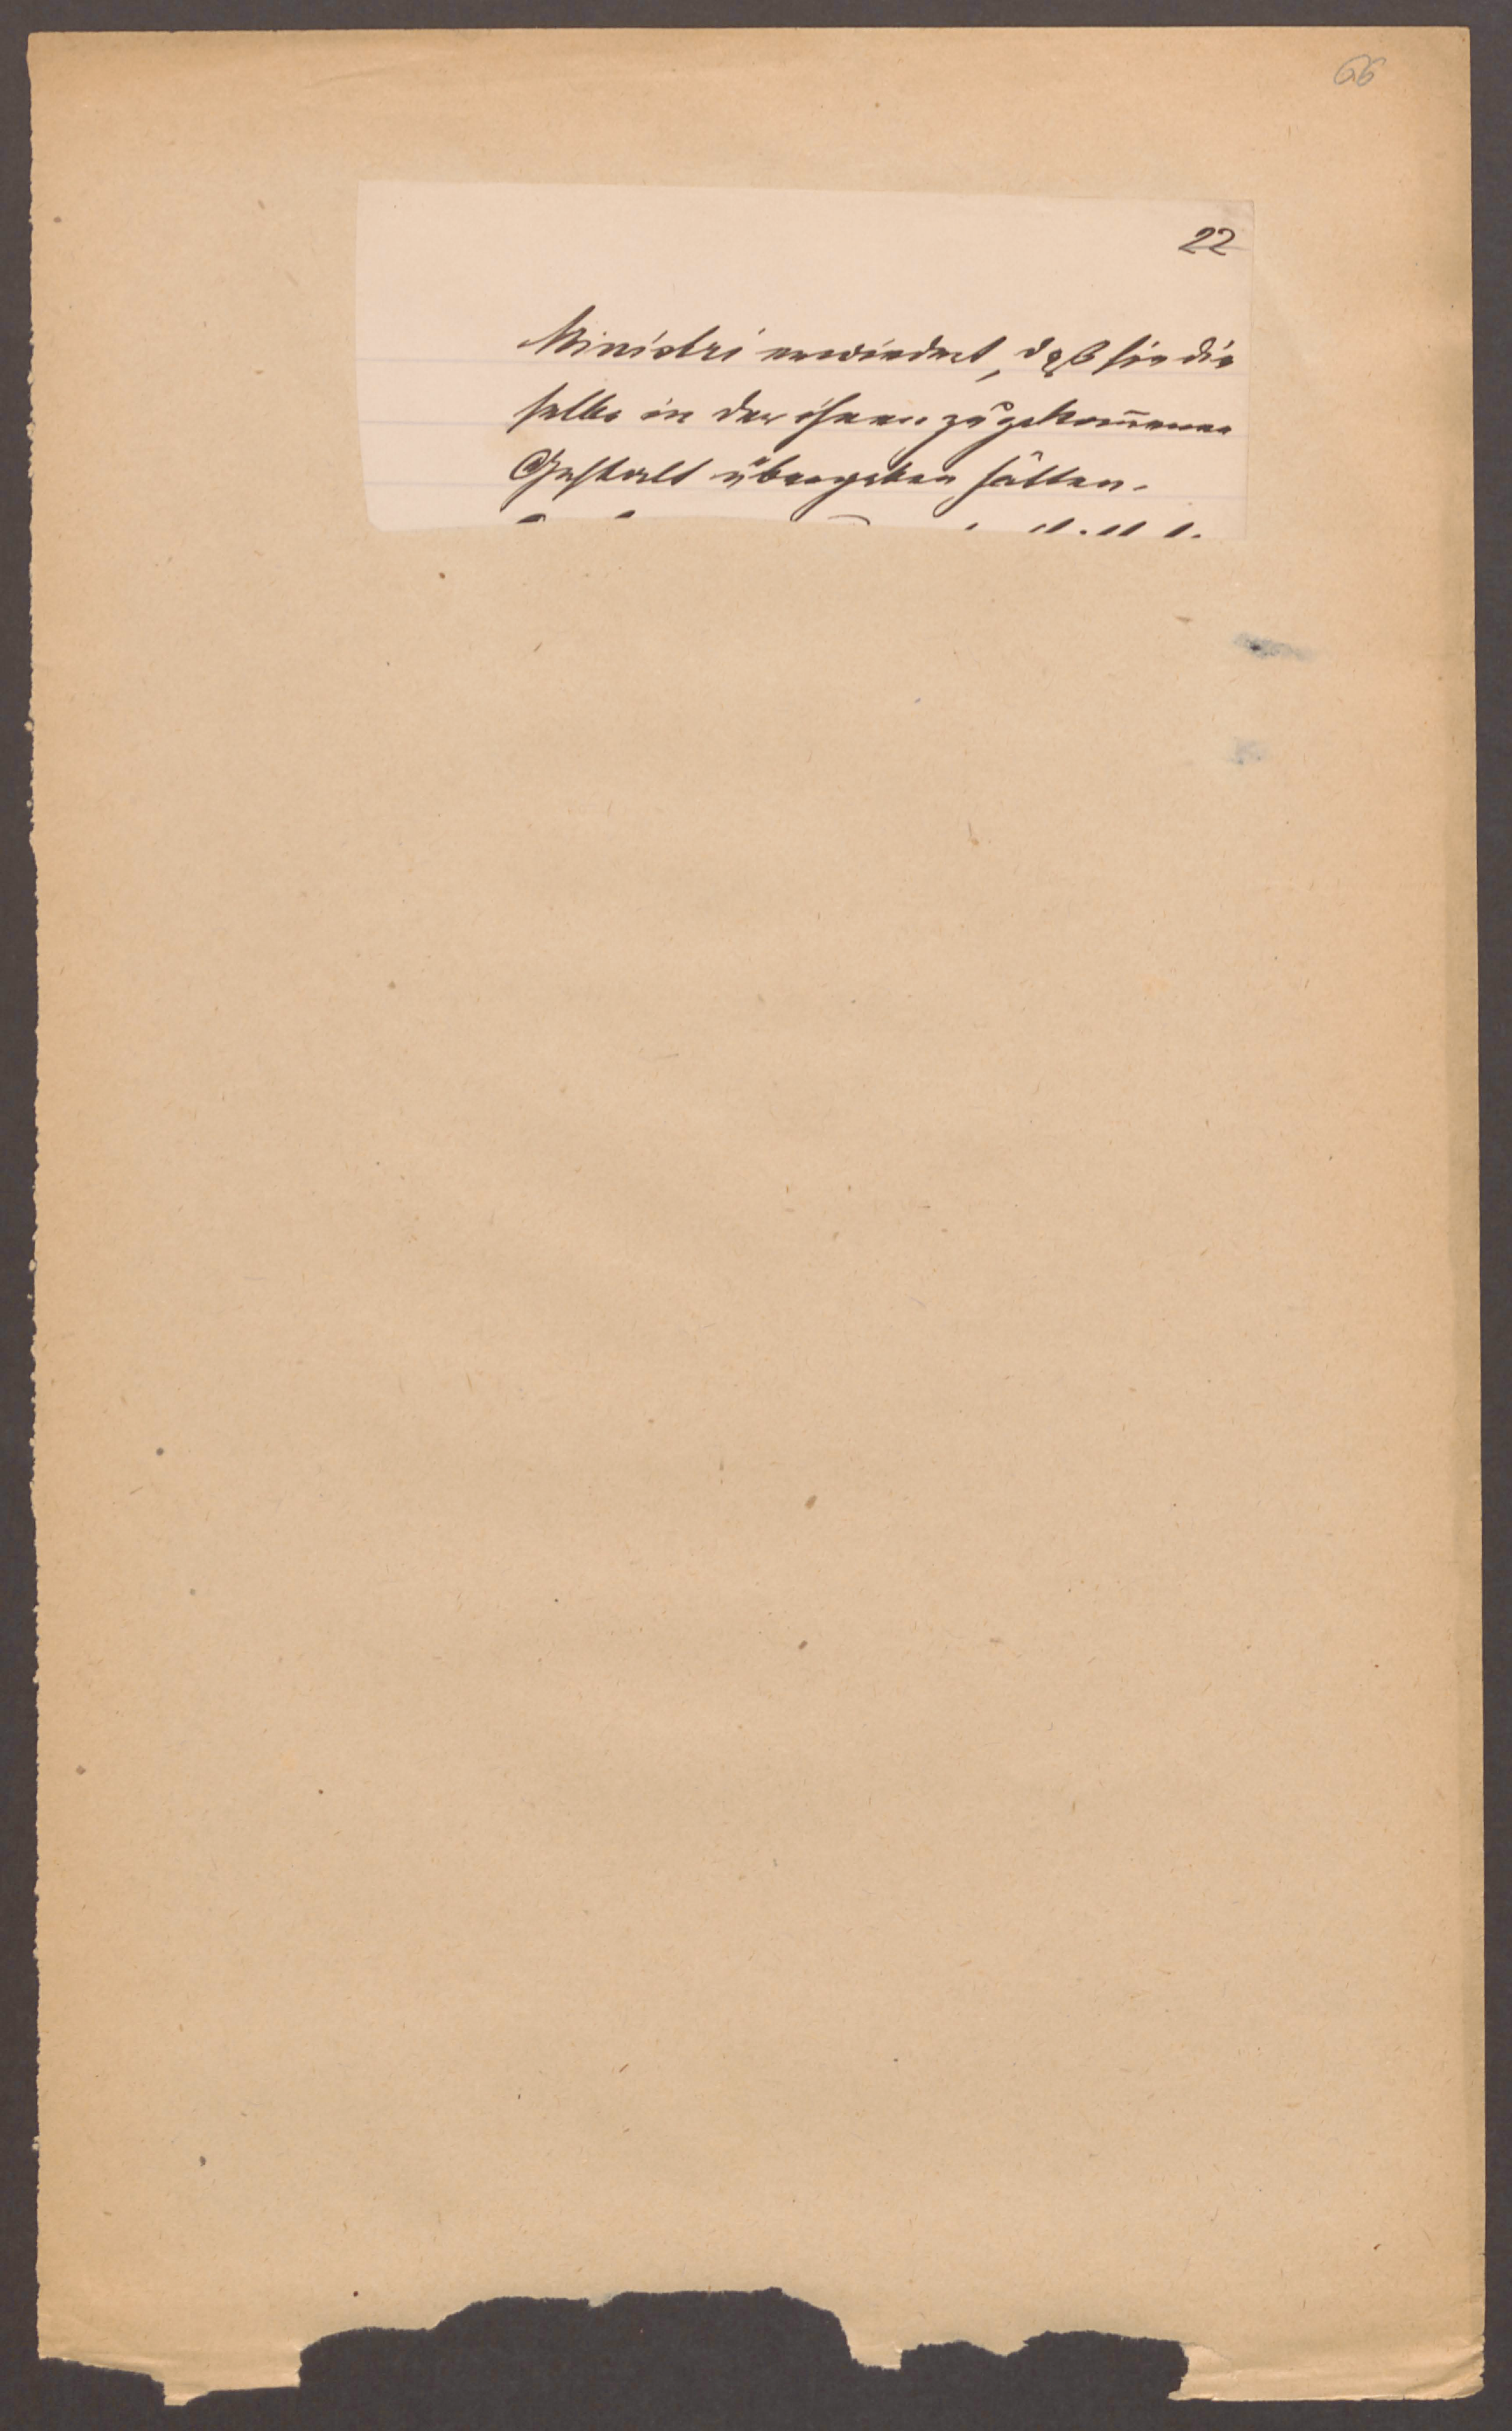 66
22
Ministri erwiedert, daß sie die
selbe in der ihnen zugekom̅ene
Gestalt übergeben hätten.